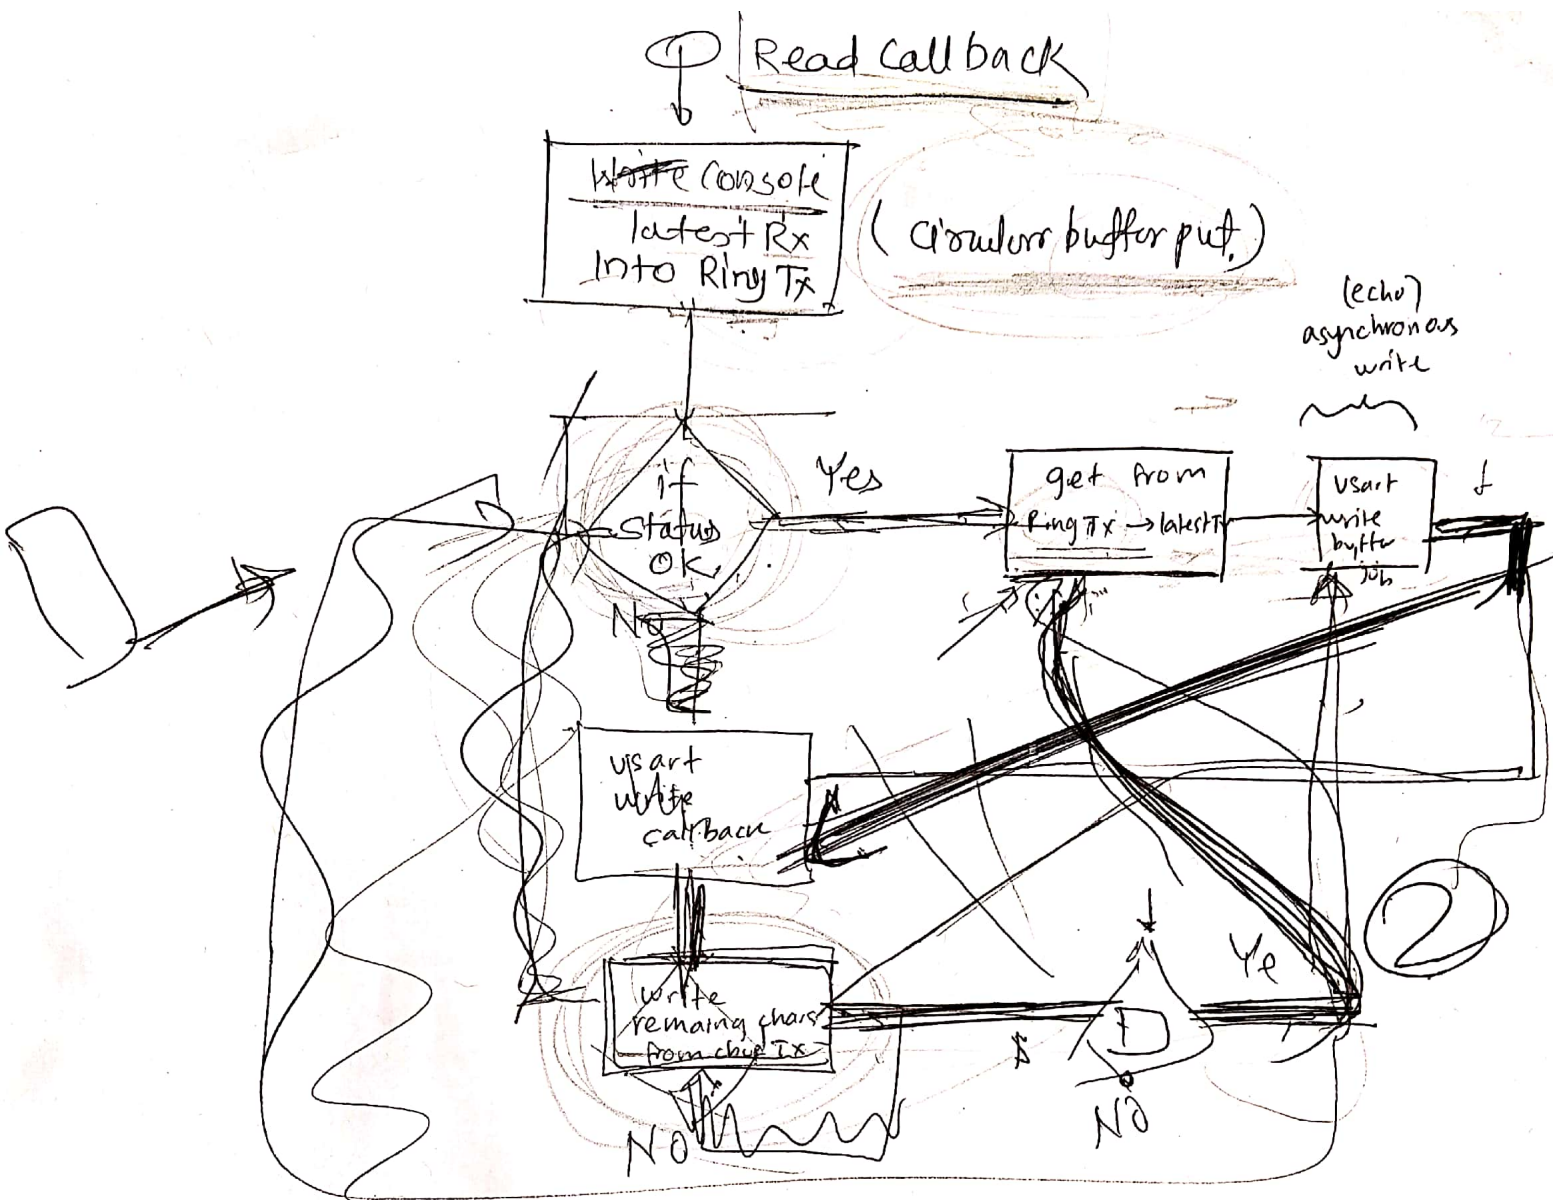 Read Callback
Write Console
latest Rx
Into Ring Tx
(Circular buffer put.)
(echo)
asynchronous
write
if
status
OK
Yes
get from
Ring Tx → latest T
usart
write
buffer
job
No
usart
write
callback
2
Ye
write
remaing chars
from cbuf Tx
No
NO